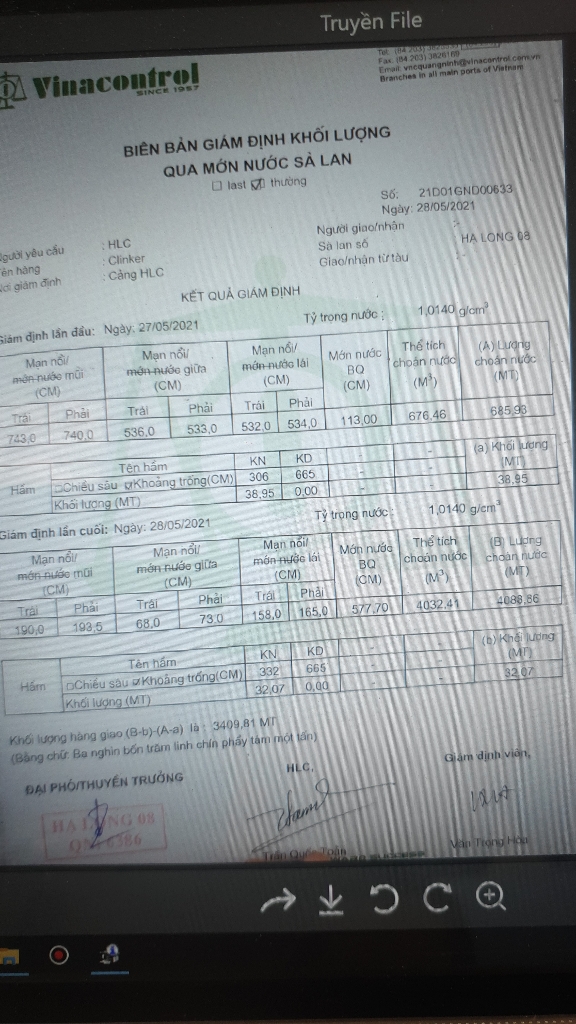 Truyền File
Vinacontrol
SINCE 1957
Fax: (84 203) 3826169
Email: vncquangninh@vinacontrol.com.vn
Branches in all main ports of Vietnam
BIÊN BẢN GIÁM ĐỊNH KHỐI LƯỢNG
QUA MỚN NƯỚC SÀ LAN
☐ last ☑ thường
Số: 21D01GND00633
Ngày: 28/05/2021
Người yêu cầu : HLC
Tên hàng : Clinker
Nơi giám định : Cảng HLC
Người giao/nhận :-
Sà lan số : HA LONG 08
Giao/nhận từ tàu :-
KẾT QUẢ GIÁM ĐỊNH
Giám định lần đầu: Ngày: 27/05/2021 Tỷ trọng nước : 1,0140 g/cm³
Mạn nổi/ mớn nước mũi (CM) Mạn nổi/ mớn nước giữa (CM) Mạn nổi/ mớn nước lái (CM) Mớn nước BQ (CM) Thể tích choán nước (M³) (A) Lượng choán nước (MT)
Trái Phải Trái Phải Trái Phải
743,0 740,0 536,0 533,0 532,0 534,0 113,00 676,46 685,93
Hầm Tên hầm KN KD - - (a) Khối lượng (MT)
☐Chiều sâu ☑Khoảng trống(CM) 306 665 - - 38,95
Khối lượng (MT) 38,95 0,00 - -
Giám định lần cuối: Ngày: 28/05/2021 Tỷ trọng nước : 1,0140 g/cm³
Mạn nổi/ mớn nước mũi (CM) Mạn nổi/ mớn nước giữa (CM) Mạn nổi/ mớn nước lái (CM) Mớn nước BQ (CM) Thể tích choán nước (M³) (B) Lượng choán nước (MT)
Trái Phải Trái Phải Trái Phải
190,0 193,5 68,0 73,0 158,0 165,0 577,70 4032,41 4088,86
Hầm Tên hầm KN KD - - (b) Khối lượng (MT)
☐Chiều sâu ☑Khoảng trống(CM) 332 665 - - 32,07
Khối lượng (MT) 32,07 0,00 - -
Khối lượng hàng giao (B-b)-(A-a) là : 3409,81 MT
(Bằng chữ: Ba nghìn bốn trăm linh chín phẩy tám một tấn)
ĐẠI PHÓ/THUYỀN TRƯỞNG HLC, Giám định viên,
HA LONG 08
6386
Trần Quốc Toản
Văn Trọng